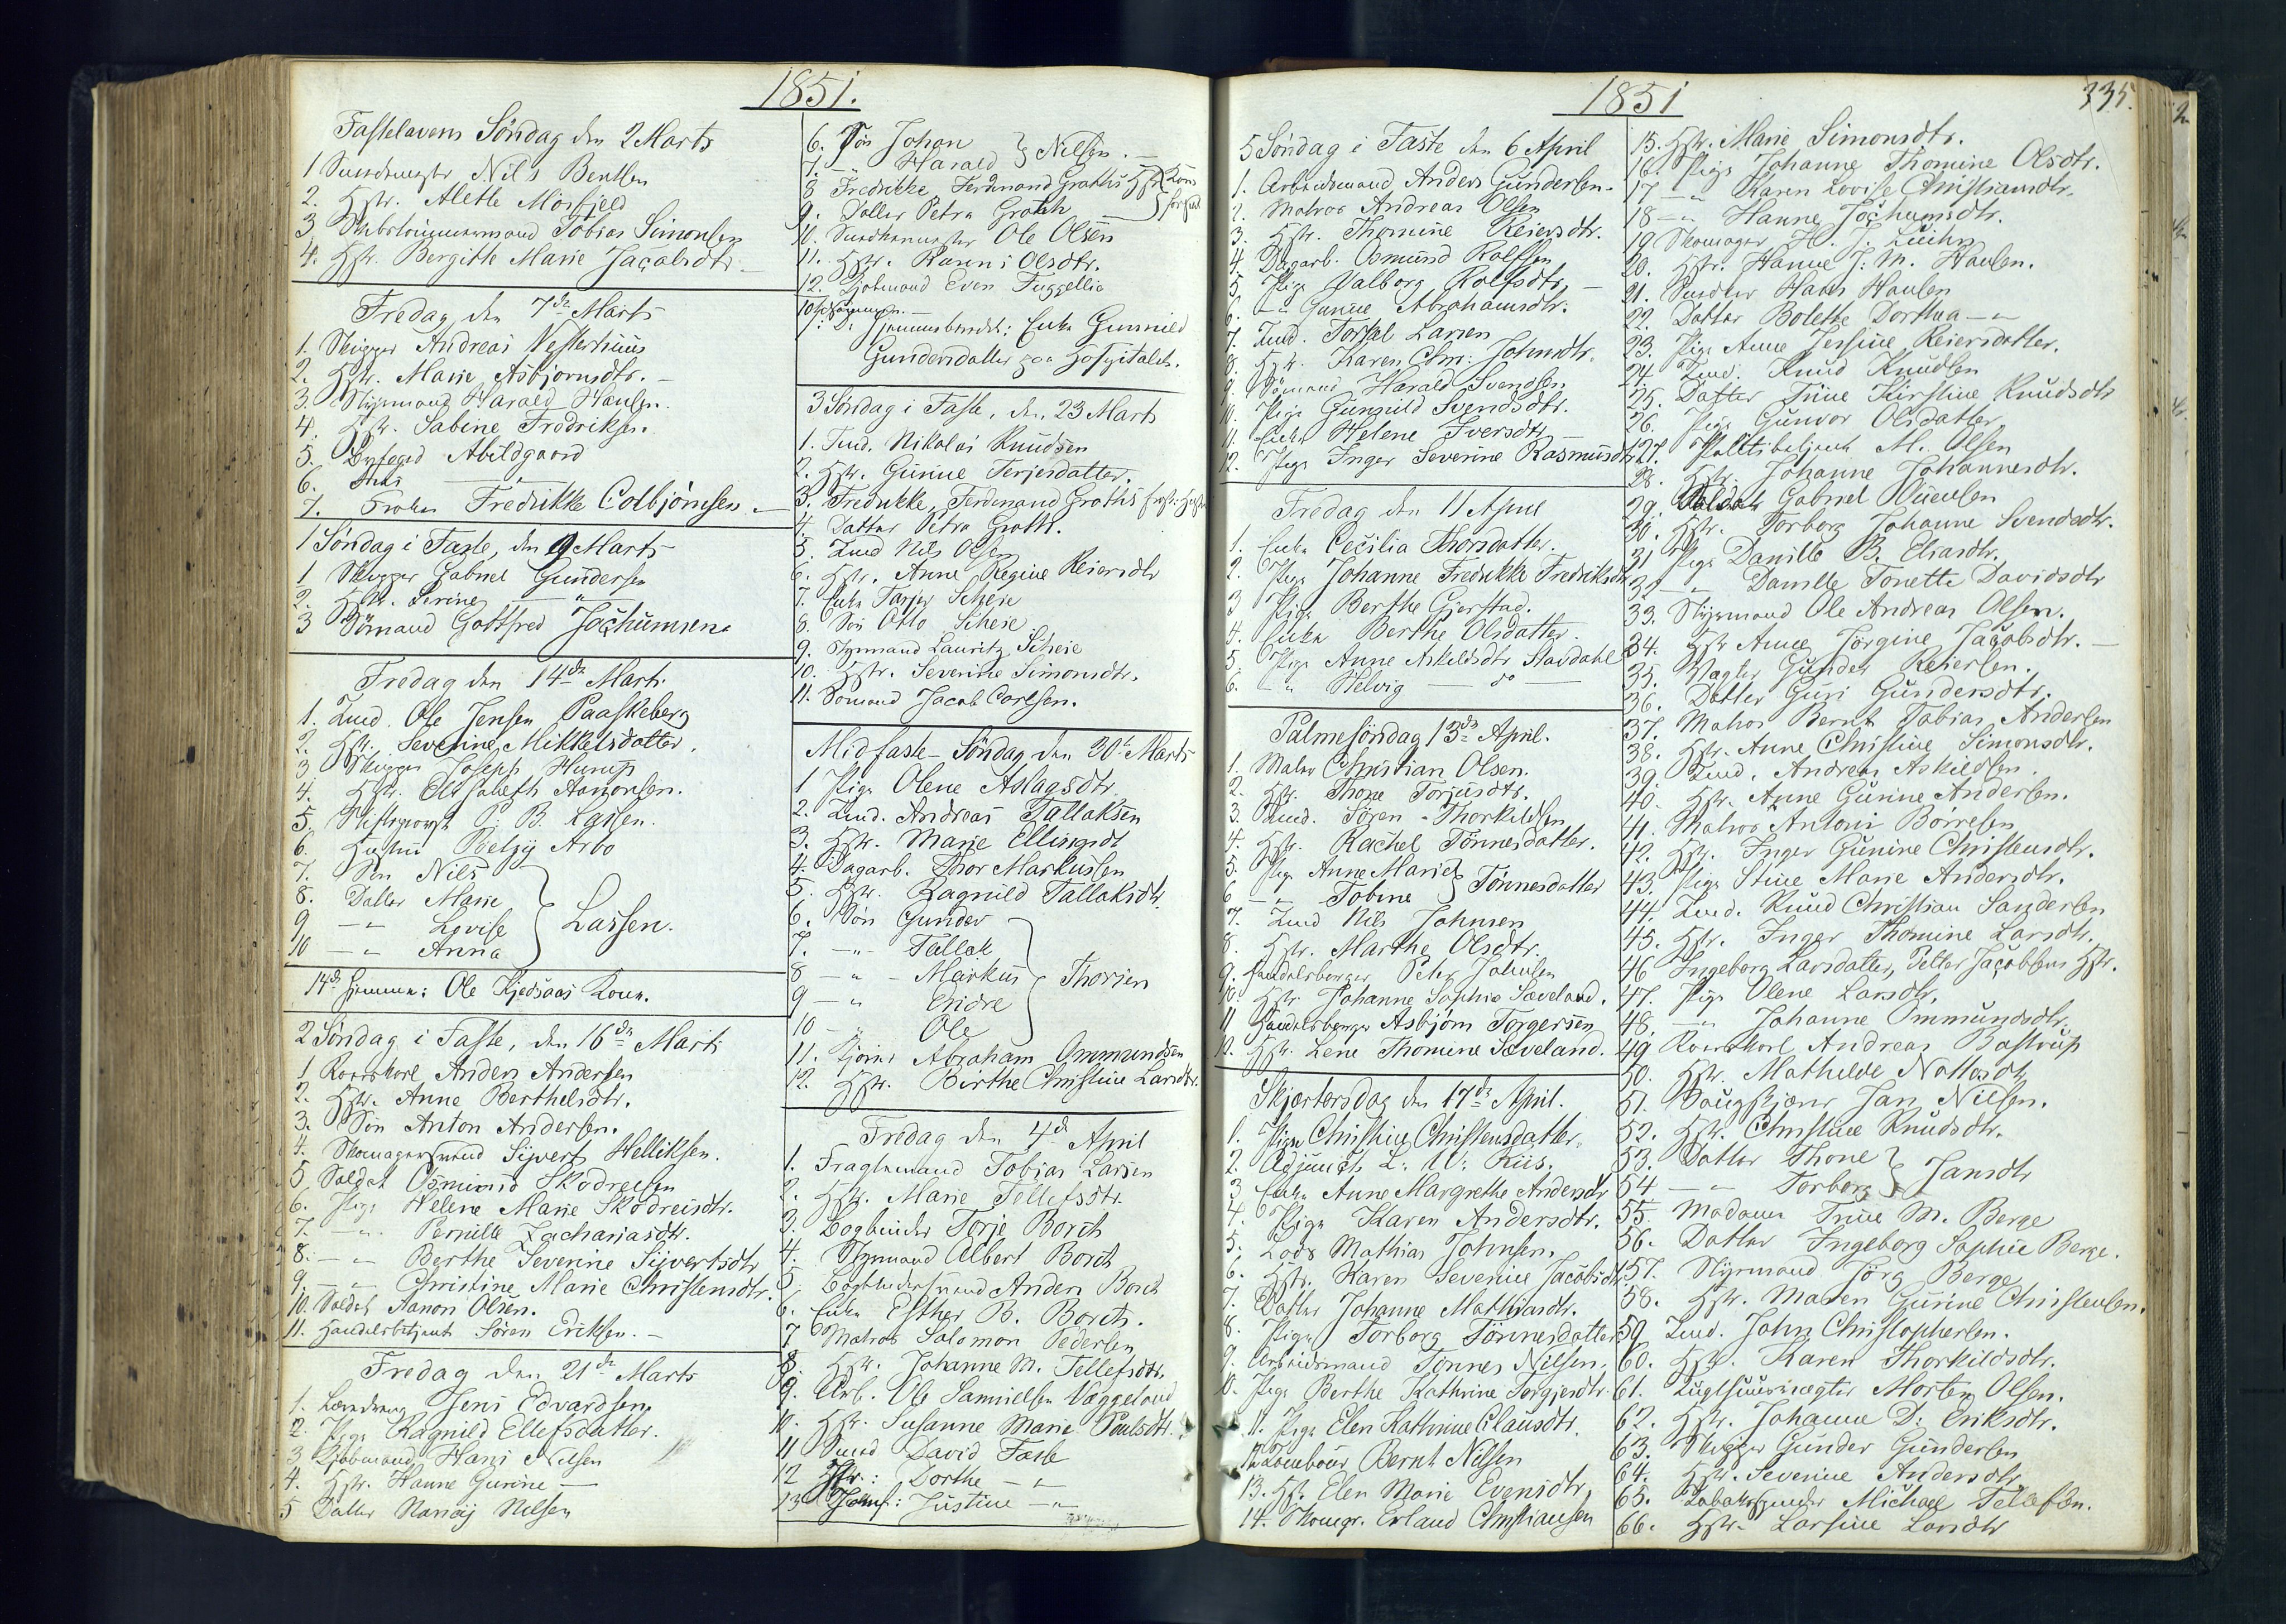 1851.
Fastelavens Söndag den 2 Marts
1 Nils Bentsen
2. Hstr. Alethe Mosfjeld
3 Tobias Simonsen
4. Hstr. Bergitte Marie Jacobsdtr.
Fredag den 7de Marts
1. Skipper Andreas Vesterhuus
2. Hstr. Marie Asbjornsdtr.
3. Styrmand Harald Hansen.
4. Hstr. Sabine Fredriksen
5. Byfoged Abildgaard
6. Frue
7. Frøken Fredrikke Colbjörnsen
1 Söndag i Faste, den 9 Marts
1 Skipper Gabriel Gundersen
2. Hstr. Serine — " —
3 Sömand Gottfred Jochumsen
Fredag den 14de Marts.
1. Tmd. Ole Jensen Paaskeberg
2. Hstr. Severine Mikkelsdatter.
3 Skipper Joseph
4. Hstr. Elisabeth Aanonsen.
5. Stiftsprovst P. B. Lassen.
6. Hustru Betzy Arbo
7. Sön Nils
8. Datter Marie
9 — " Lovise
10 — " Anna
Lassen.
14de Hjemme: Ole Kjedsaas Kone.
2 Söndag i Faste, den 16de Marts
1 Anders Andersen
2. Hstr. Anne Berthelsdtr.
3. Sön Anton Andersen.
4. Skomagersvend Sivert Helliksen.
5 Soldat Osmund Skodreisen
6. Pige Helene Marie Skodreisdtr.
7. — " Pernille Zachariasdtr.
8. — " Berthe Severine Sivertsdtr
9. — " Christine Marie Christensdtr.
10. Soldat Aanon Olsen.
11. Handelsbetjent Sören Eriksen. —
Fredag den 21de Marts
1. Jens Edvardsen
2. Pige Ragnild Ellefsdatter.
3 Hans Nilsen
4. Hstr. Hanne Gurine —
5 Datter Nilsen
6. Sön Johan
7. — " Harald
Nilsen. —
8 Fredrikke, Ferdinand Groths Hstr
9. Datter Petra Groth
10. Ole Olsen
11. Hstr. Karen Olsdtr.
12. Even
Hjemmeberettet: Enke Gunnild
Gundersdatter paa Hospitalet.
3 Söndag i Faste, den 23 Marts
1. Tmd. Nikolai Knudsen
2. Hstr. Gunne Terjesdatter.
3. Fredrikke, Ferdinand Groths
4. Datter Petra Groth.
5. Tmd Nils Olsen
6. Hstr. Anne Regine Reiersdtr
7. Enke Tarjer Scheie
8. Sön Otto Scheie
9. Styrmand Lauritz Scheie
10. Hstr. Severine Simonsdtr.
11. Sömand Jacob Carlsen.
Midfaste-Söndag den 30te Marts
1 Pige Olene Aslagsdtr.
2. Tmd. Andreas Tallaksen
3. Hstr. Marie Ellingsdt
4. Dagarb. Thor Markussen
5. Hstr. Ragnild Tallaksdtr.
6. Sön Gunder
7. — " Tallak
8 — " Markus
9 — " Endre
10 — " Ole
Thorsen
11. Abraham Ommundsen
12. Hstr. Birthe Christine Larsdtr.
Fredag den 4de April
1. Fragtemand Tobias Larsen
2. Hstr. Marie Tellefsdtr.
3. Bogbinder Terje Borch
4. Styrmand Albert Borch
5. Bogbindersvend Anders Borch
6. Enke Esther B. Borch.
7 Matros Salomon Pedersen
8. Hstr. Johanne M. Tellefsdtr.
9. Arb. Ole Samuelsen Væggeland
10. Hstr. Susanne Marie Poulsdtr.
11 Smed David Faste
12 Hstr.: Dorthe — " —
13 Justine — " —
1851
335.
5 Söndag i Faste den 6 April
1. Arbeidsmand Anders Gundersen.
2. Matros Andreas Olsen
3. Hstr. Thomine Reiersdtr.
4. Dagarb. Osmund Rolfsen
5. Pige Valborg Rolfsdtr. —
6. — " Gunne Abrahamsdtr.
7. Tmd. Torkel Larsen
8. Hstr. Karen Chr: Johnsdtr.
9. Sömand Harald Svendsen
10. Pige Gunnild Svendsdtr.
11. Enke Helene Iversdtr
12. Pige Inger Severine Rasmusdtr
Fredag den 11 April
1. Enke Cecilia Thorsdatter.
2. Pige Johanne Fredrikke Fredriksdtr
3 Pige Berthe Gjerstad.
4. Enke Berthe Olsdatter.
5. Pige Anne Askildsdtr Stavdahl
6. — " Helvig — do —
Palmesöndag 13de April.
1. Matros Christian Olsen.
2. Hstr. Thone Torjusdtr.
3. Tmd. Sören Thorkildsen
4. Hstr. Rachel Tönnesdatter.
5. Pige Anne Marie
6 — " Tobine
Tönnesdatter
7. Tmd Nils Johnsen
8. Hstr. Marthe Olsdtr.
9. Handelsborger Peter Jacobsen
10. Hstr Johanne Sophie Sæveland.
11 Handelsborger Asbjörn Torgersen
12. Hstr. Lene Thomine Sæveland.
Skjærtorsdag den 17de April.
1. Pige Christine Christensdatter.
2. Adjunct L. W. Riis.
3 Enke Anne Margrethe Andersdtr
4. Pige Karen Andersdtr.
5. Lods Mathias Johnsen.
6. Hstr. Karen Severine Jacobsdtr
7. Datter Johanne Mathiasdtr.
8. Pige Torborg Tönnesdatter
9. Arbeidsmand Tönnes Nilsen.
10. Pige Berthe Kathrine Torgjersdtr.
11. Pige Elen Kathrine Clausdtr.
12 Tambour Bernt Nilsen
13. Hst. Elen Marie Evensdtr.
14. Skomgr. Erland Christiansen
15. Hstr. Marie Simonsdtr.
16. Pige Johanne Thomine Olsdtr.
17 — " Karen Lovise Christiansdtr.
18 — " Hanne Jochumsdtr.
19 Skomager H. J.
20. Hstr. Hanne J. M. Hansen.
21. Snedker Hans Hansen
22. Datter Bolette Dorthea — " —
23. Pige Anne Jensine Reiersdatter.
24. Tmd. Knud Knudsen
25. Datter Trine Kirstine Knudsdtr
26. Pige Gunvor Olsdatter
27. Politibetjent M. Olsen
28. Hstr. Johanne Johannesdtr.
29. Soldat Gabriel
30. Hstr. Torborg Johanne Svendsdtr.
31 Pige Danille B. Eliasdtr.
32 — " Danille Tonette Davidsdtr
33. Styrmand Ole Andreas Olsen.
34. Hstr Anne Jörgine Jacobsdtr. —
35. Vægter Gunder Reiersen.
36. Datter Guri Gundersdtr.
37. Matros Bernt Tobias Andersen
38. Hstr. Anne Christine Simonsdtr.
39. Tmd. Andreas Askildsen.
40. Hstr. Anne Gurine Andersen.
41. Matros Antoni Börresen
42. Hstr. Inger Gunine Christensdtr.
43. Pige Stine Marie Andersdtr.
44. Tmd. Knud Christian Sandersen
45. Hstr. Inger Thomine Larsdtr.
46 Ingeborg Larsdatter, Petter Jacobsens Hstr.
47. Pige Olene Larsdtr.
48. — " Johanne Ommundsdtr.
49 Andreas Bastrup
50. Hstr. Mathilde
51. Jan Nilsen.
52. Hstr. Christine Knudsdtr.
53. Datter Thone
54 — " Torborg
Jansdtr
55. Madame Trine M. Berge
56. Datter Ingeborg Sophie Berge.
57. Styrmand Jörg Berge
58. Hstr. Maren Gurine Christensen.
59. Tmd. John Christophersen.
60. Hstr. Karen Thorkildsdtr.
61. Morten Olsen.
62. Hstr. Johanne D. Eriksdtr.
63. Skipper Gunder Gundersen
64. Hstr. Severine Andersdtr
65. Tobakspinder Michael Tellefsen.
66. Hstr. Larsine Larsdtr